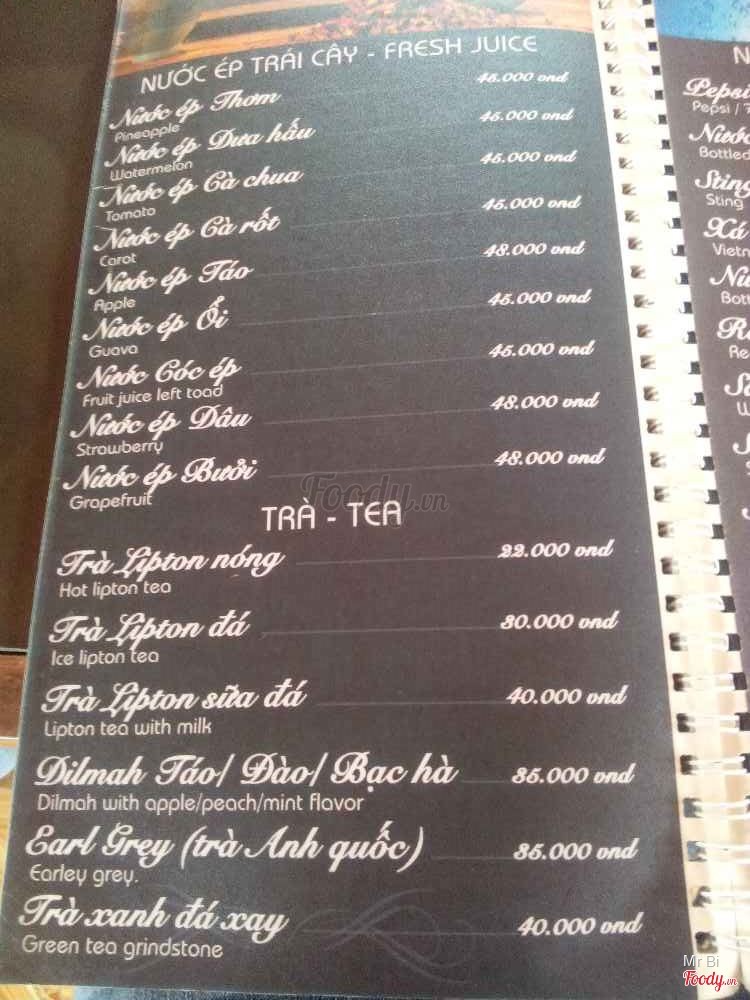 NƯỚC ÉP TRÁI CÂY - FRESH JUICE
Nước ép Thơm 45.000 vnd
Pineapple
Nước ép Dưa hấu 45.000 vnd
Watermelon
Nước ép Cà chua 45.000 vnd
Tomato
Nước ép Cà rốt 45.000 vnd
Carot
Nước ép Táo 48.000 vnd
Apple
Nước ép Ổi 45.000 vnd
Guava
Nước Cóc ép 45.000 vnd
Fruit juice left toad
Nước ép Dâu 48.000 vnd
Strawberry
Nước ép Bưởi 48.000 vnd
Grapefruit
Foody.vn
TRÀ - TEA
Trà Lipton nóng 22.000 vnd
Hot lipton tea
Trà Lipton đá 30.000 vnd
Ice lipton tea
Trà Lipton sữa đá 40.000 vnd
Lipton tea with milk
Dilmah Táo/ Đào/ Bạc hà 35.000 vnd
Dilmah with apple/peach/mint flavor
Earl Grey (trà Anh quốc) 35.000 vnd
Earley grey.
Trà xanh đá xay 40.000 vnd
Green tea grindstone
Pepsi
Pepsi /
Nước
Bottled
Sting
Sting
Xá
Mr Bi
Foody.vn